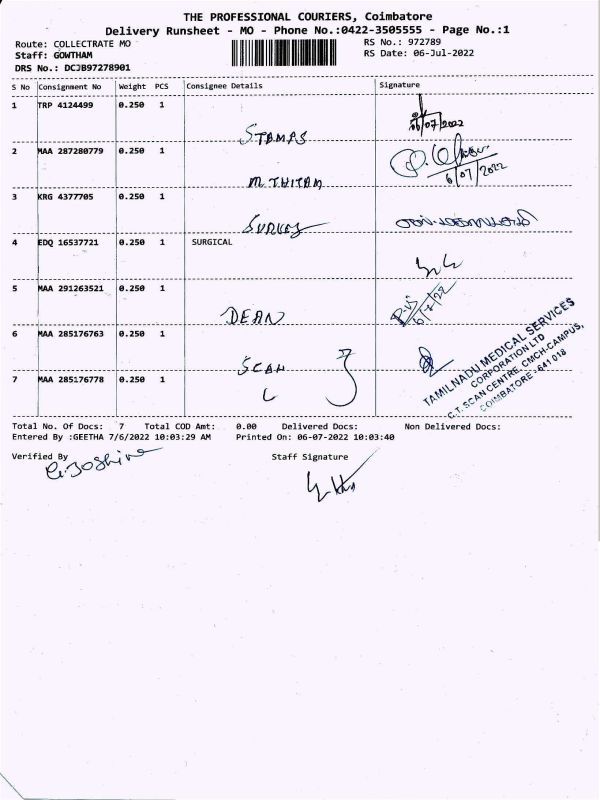 THE PROFESSIONAL COURIERS, Coimbatore
Delivery Runsheet - MO - Phone No.:0422-3505555 - Page No.:1
Route: COLLECTRATE MO
Staff: GOWTHAM
DRS No.: DCJB97278901
RS No.: 972789
RS Date: 06-Jul-2022
S No Consignment No Weight PCS Consignee Details Signature
1 TRP 4124499 0.250 1
STAMPS 06/07/2022
2 MAA 287280779 0.250 1
6/07/2022
3 KRG 4377705 0.250 1
4 EDQ 16537721 0.250 1 SURGICAL
5 MAA 291263521 0.250 1
DEAN
6 MAA 285176763 0.250 1
SCAN
7 MAA 285176778 0.250 1
TAMILNADU MEDICAL SERVICES
CORPORATION LTD
C.T. SCAN CENTRE, CMCH-CAMPUS,
COIMBATORE - 641 018
Total No. Of Docs: 7 Total COD Amt: 0.00 Delivered Docs: Non Delivered Docs:
Entered By :GEETHA 7/6/2022 10:03:29 AM Printed On: 06-07-2022 10:03:40
Verified By Staff Signature